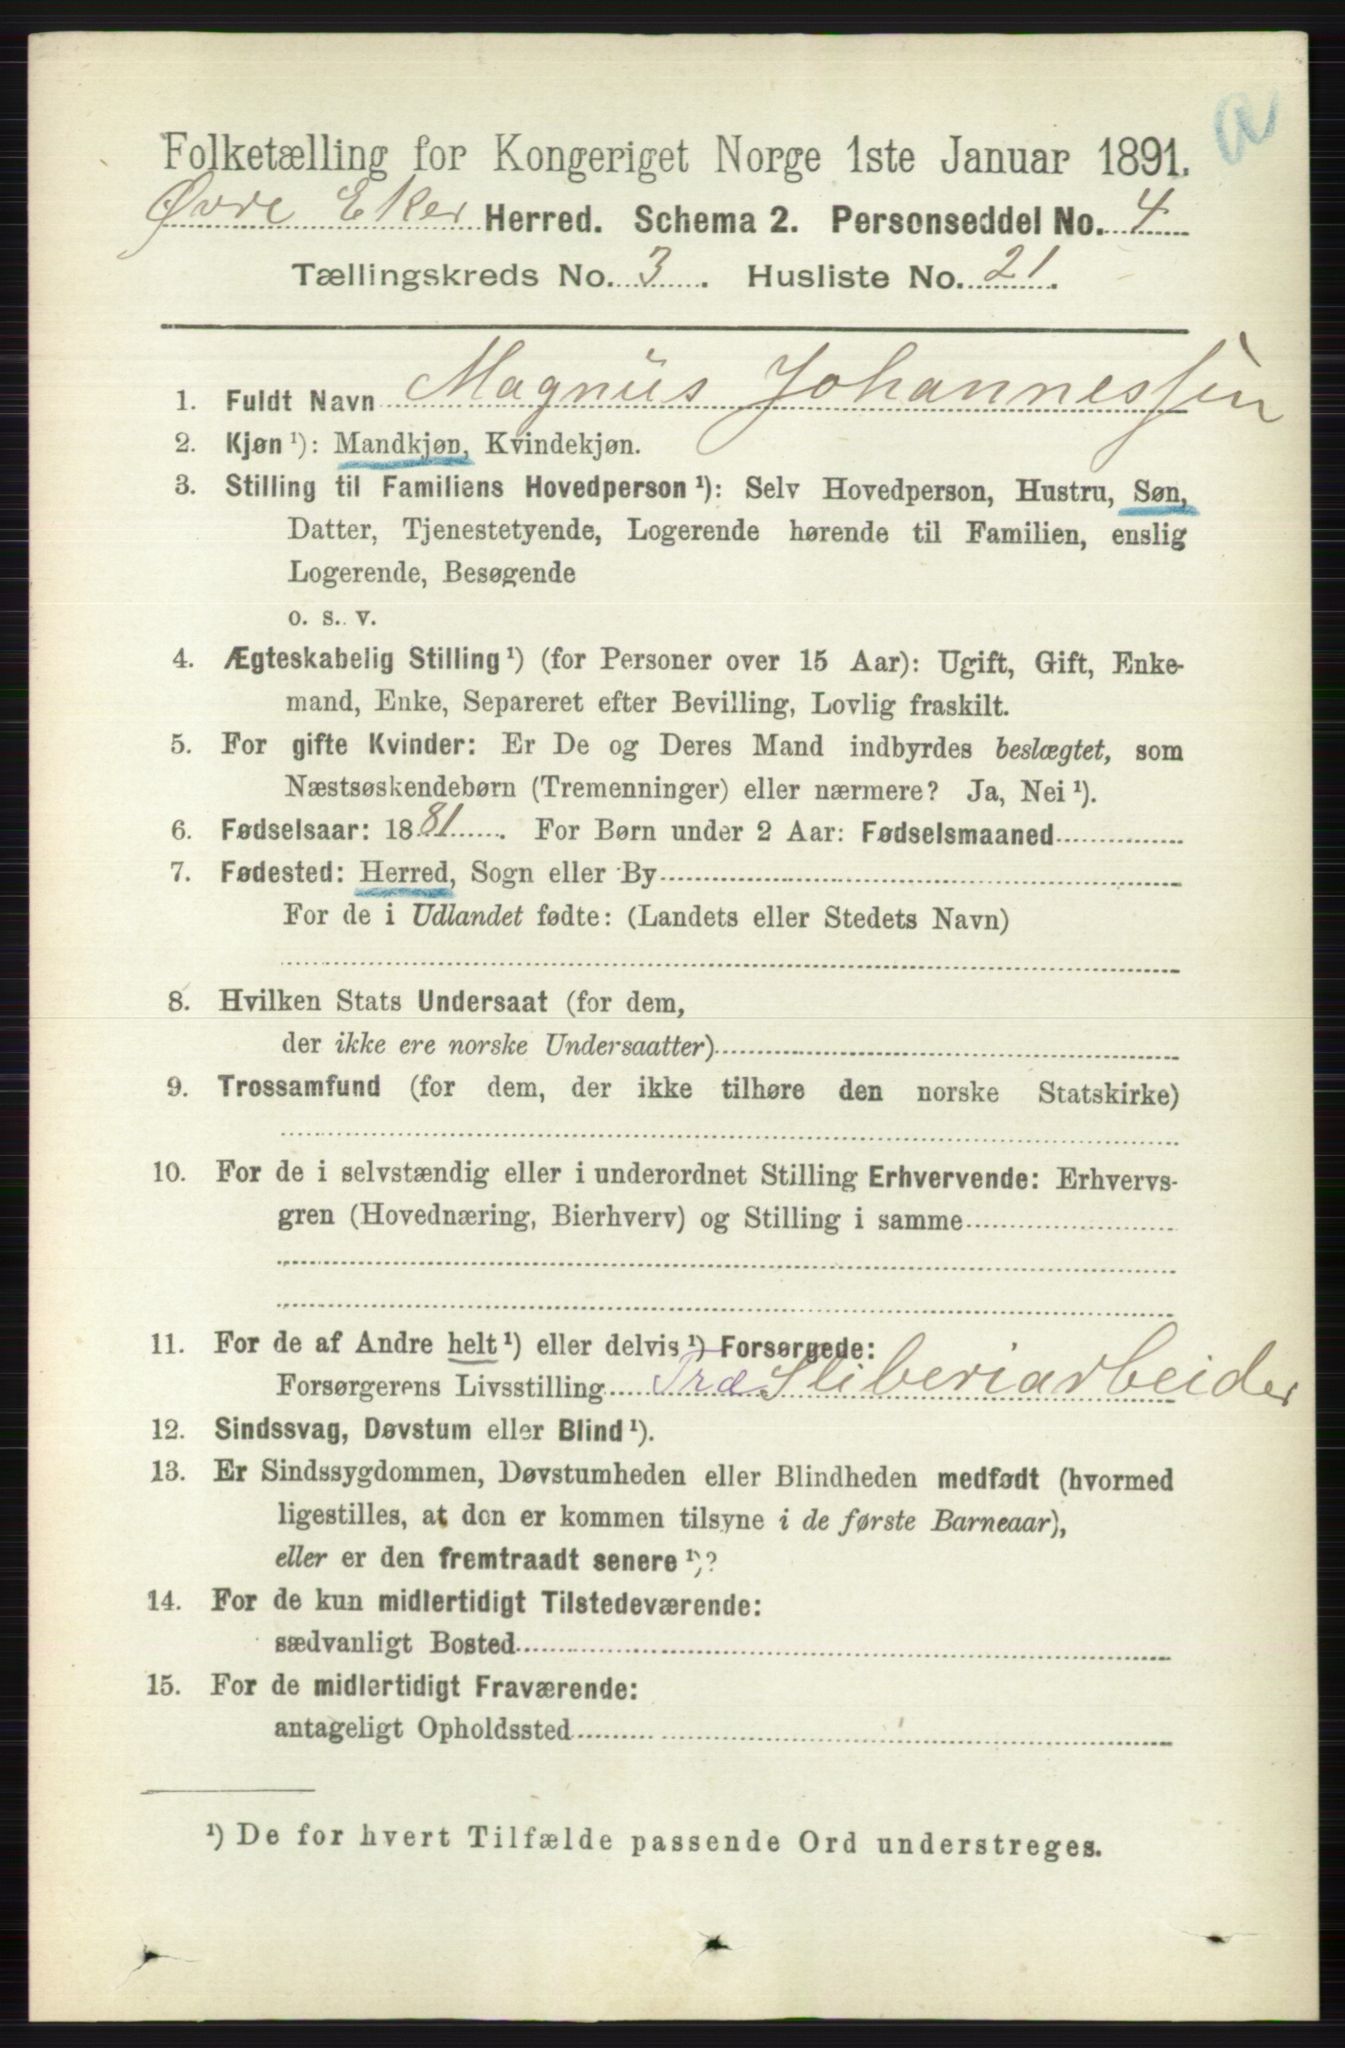 a
Folketælling for Kongeriget Norge 1ste Januar 1891.
Øvre Eker Herred. Schema 2. Personseddel No. 4
Tællingskreds No. 3. Husliste No. 21.
1. Fuldt Navn Magnus Johannessen
2. Kjøn¹): Mandkjøn, Kvindekjøn.
3. Stilling til Familiens Hovedperson¹): Selv Hovedperson, Hustru, Søn,
Datter, Tjenestetyende, Logerende hørende til Familien, enslig
Logerende, Besøgende
o. s. v.
4. Ægteskabelig Stilling¹) (for Personer over 15 Aar): Ugift, Gift, Enke-
mand, Enke, Separeret efter Bevilling, Lovlig fraskilt.
5. For gifte Kvinder: Er De og Deres Mand indbyrdes beslægtet, som
Næstsøskendebørn (Tremenninger) eller nærmere? Ja, Nei¹).
6. Fødselsaar: 1881. For Børn under 2 Aar: Fødselsmaaned
7. Fødested: Herred, Sogn eller By
For de i Udlandet fødte: (Landets eller Stedets Navn)
8. Hvilken Stats Undersaat (for dem,
der ikke ere norske Undersaatter)
9. Trossamfund (for dem, der ikke tilhøre den norske Statskirke)
10. For de i selvstændig eller i underordnet Stilling Erhvervende: Erhvervs-
gren (Hovednæring, Bierhverv) og Stilling i samme
11. For de af Andre helt¹) eller delvis¹) Forsørgede:
Forsørgerens Livsstilling Træ Sliberiarbeider
12. Sindssvag, Døvstum eller Blind¹).
13. Er Sindssygdommen, Døvstumheden eller Blindheden medfødt (hvormed
ligestilles, at den er kommen tilsyne i de første Barneaar),
eller er den fremtraadt senere¹)?
14. For de kun midlertidigt Tilstedeværende:
sædvanligt Bosted
15. For de midlertidigt Fraværende:
antageligt Opholdssted
¹) De for hvert Tilfælde passende Ord understreges.